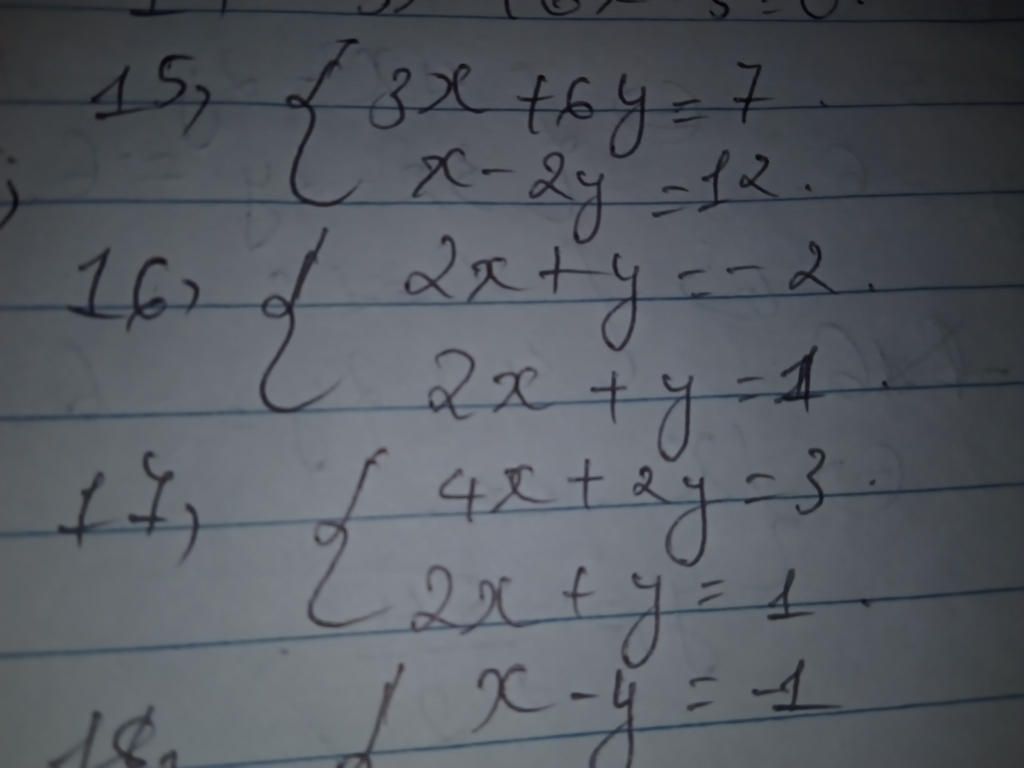 15, { 3x + 6y = 7 .
x - 2y = 12 .
16, { 2x + y = - 2 .
2x + y = 1 .
17, { 4x + 2y = 3 .
2x + y = 1 .
18, { x - y = -1